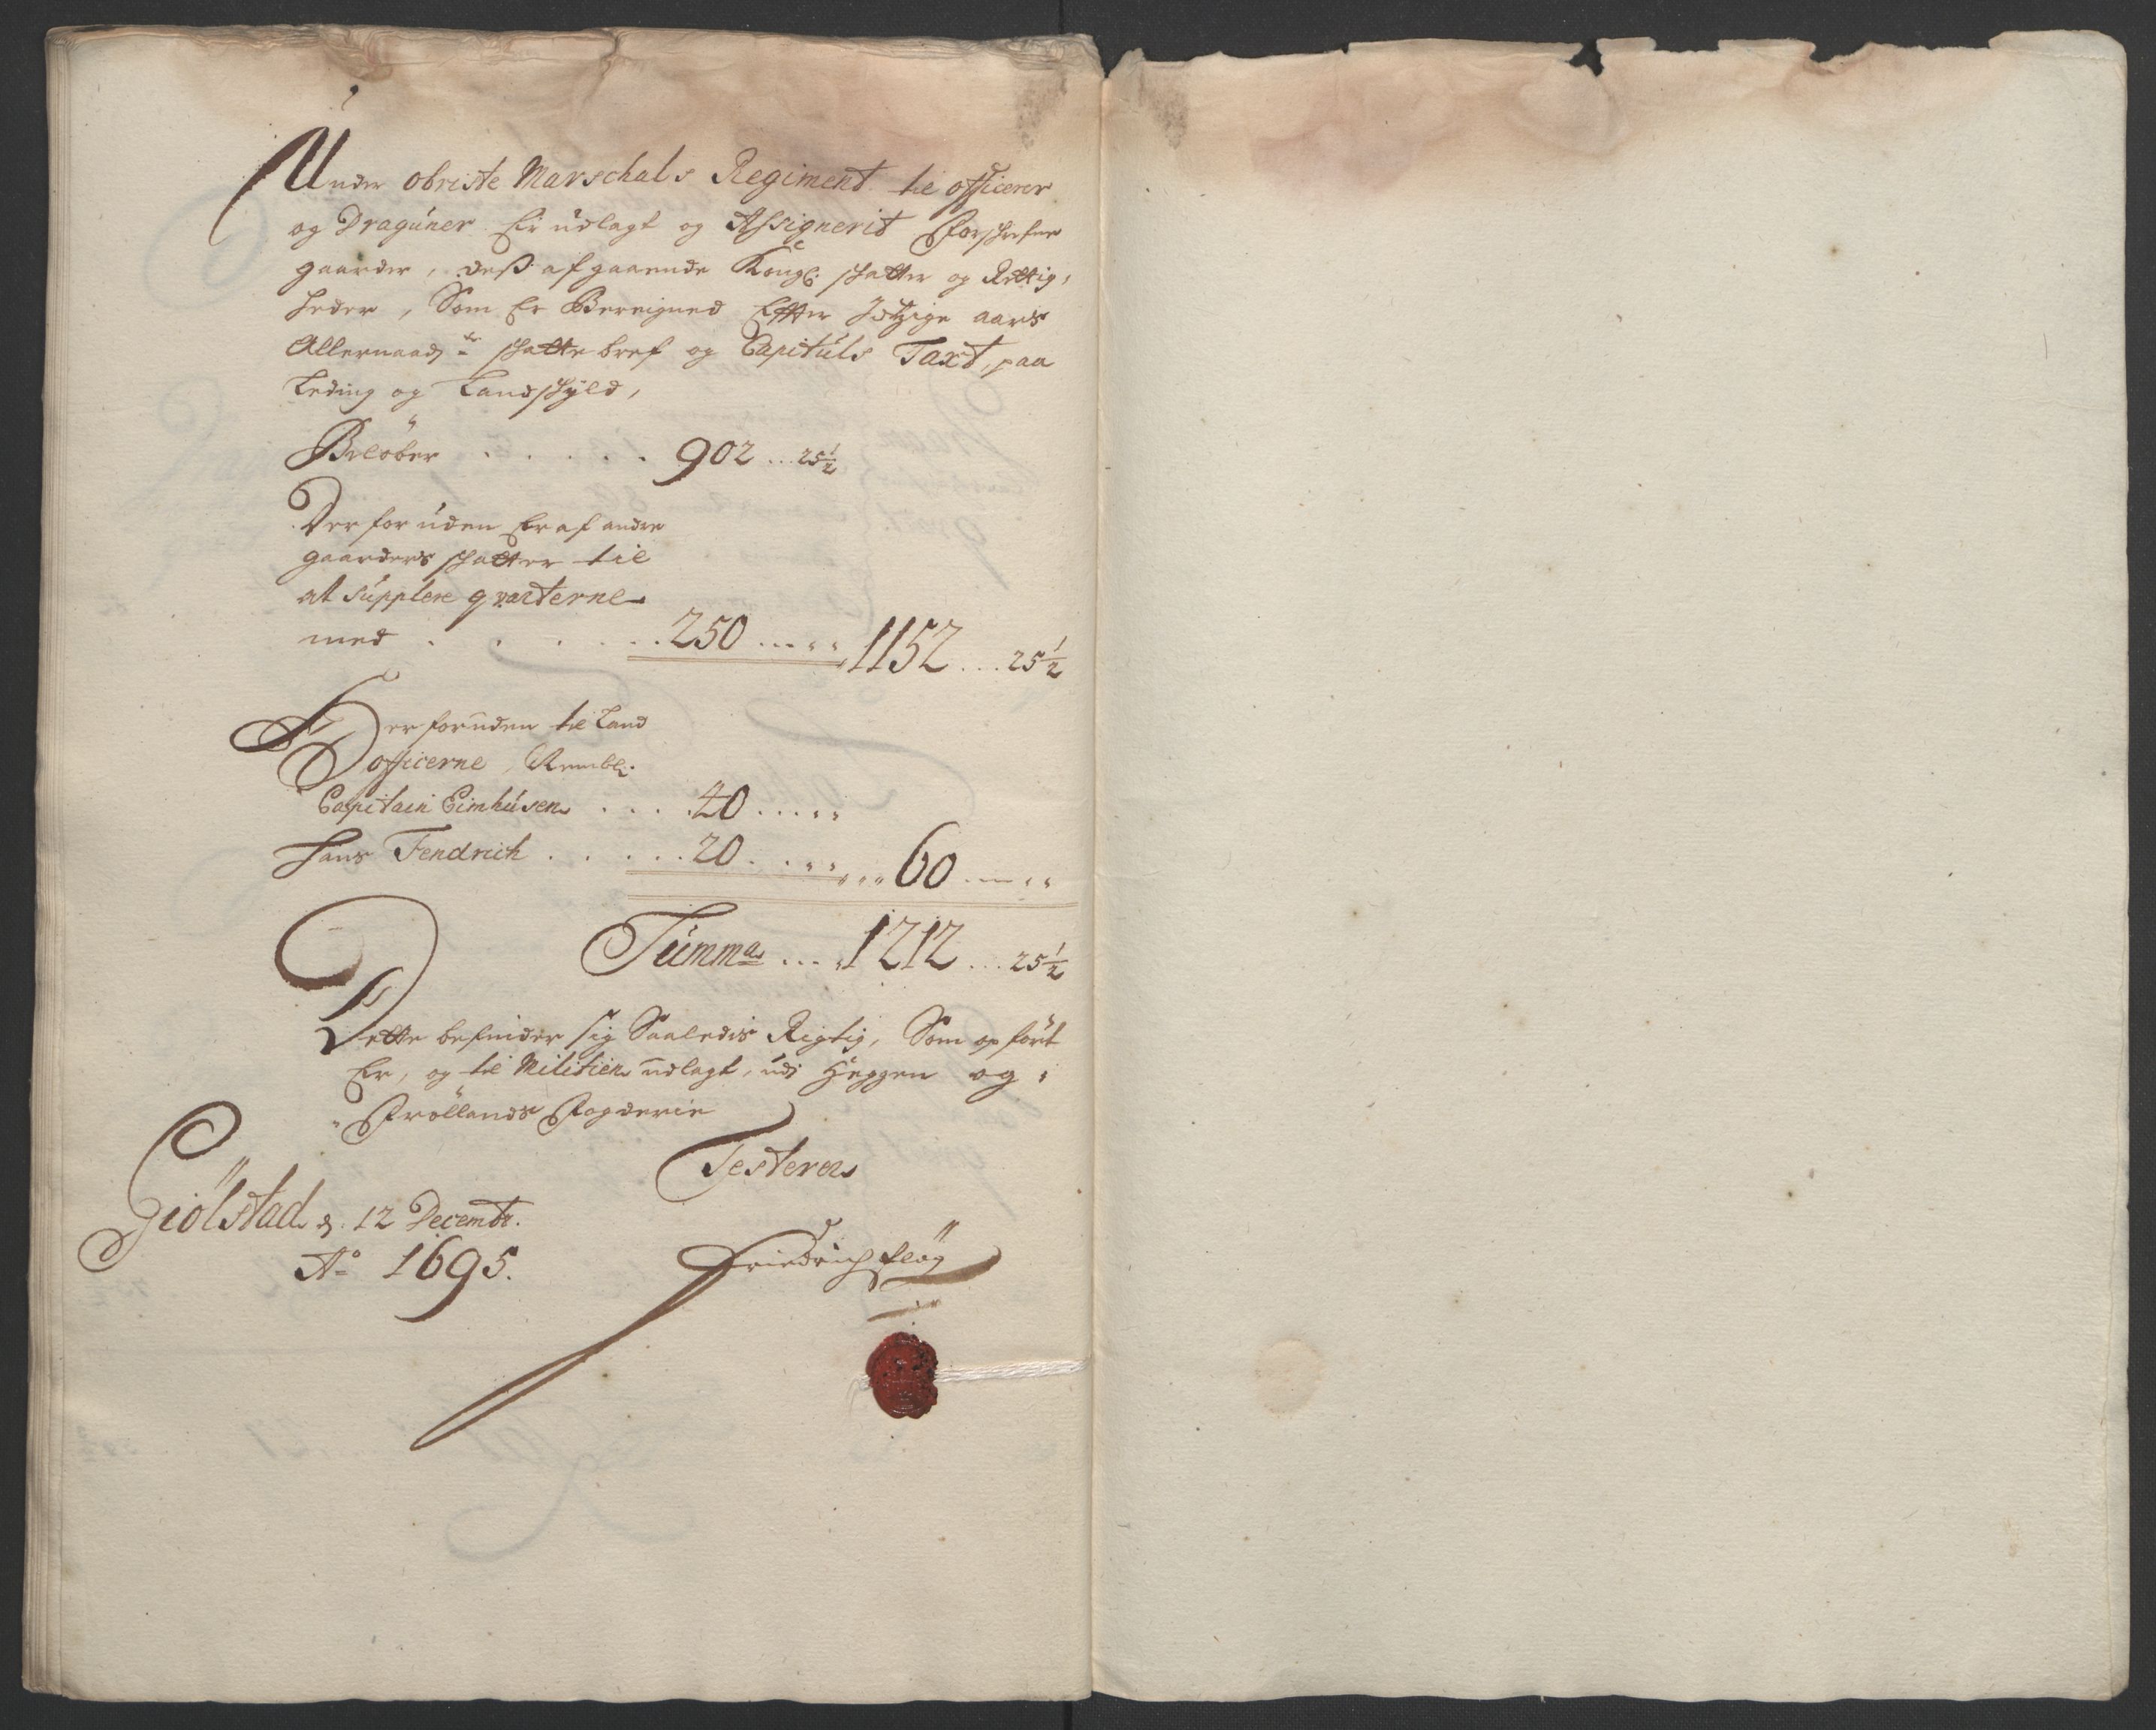 Under obriste Marschals Regiment til officerer
og Dragúner Er údlagt og Assignerit Forschrefne
gaarder, deß afgaaende Kongl: schatter og Rettig,
heder, Som Er Bereigned Effter Jdtzige aars
Allernaadgste schattebref og Capitúls Taxt, paa
Leding og Landschÿld,
Beløber . . . . . 902 ... 25½
Der for úden Er af andre
gaarders schatter til
at súpplere qvarterne
med . . . . . 250 ... 1152 ... 25½
Her forúden til Land
officerne, Nembl:
Capitain Eimhúsen . . . . 40 ...
Hans Fendrich . . . . . 20 ... 60 ...
Súmma ... 1212 ... 25½
Dette befinder sig Saaledis Rigtig, Som opført
Er, og til Militien údlagt, údj Heggen og
Frøllands Fogderie
Testerer
Giølstad d. 12 Decembr.
Ao 1695.
Friedrich Fløg